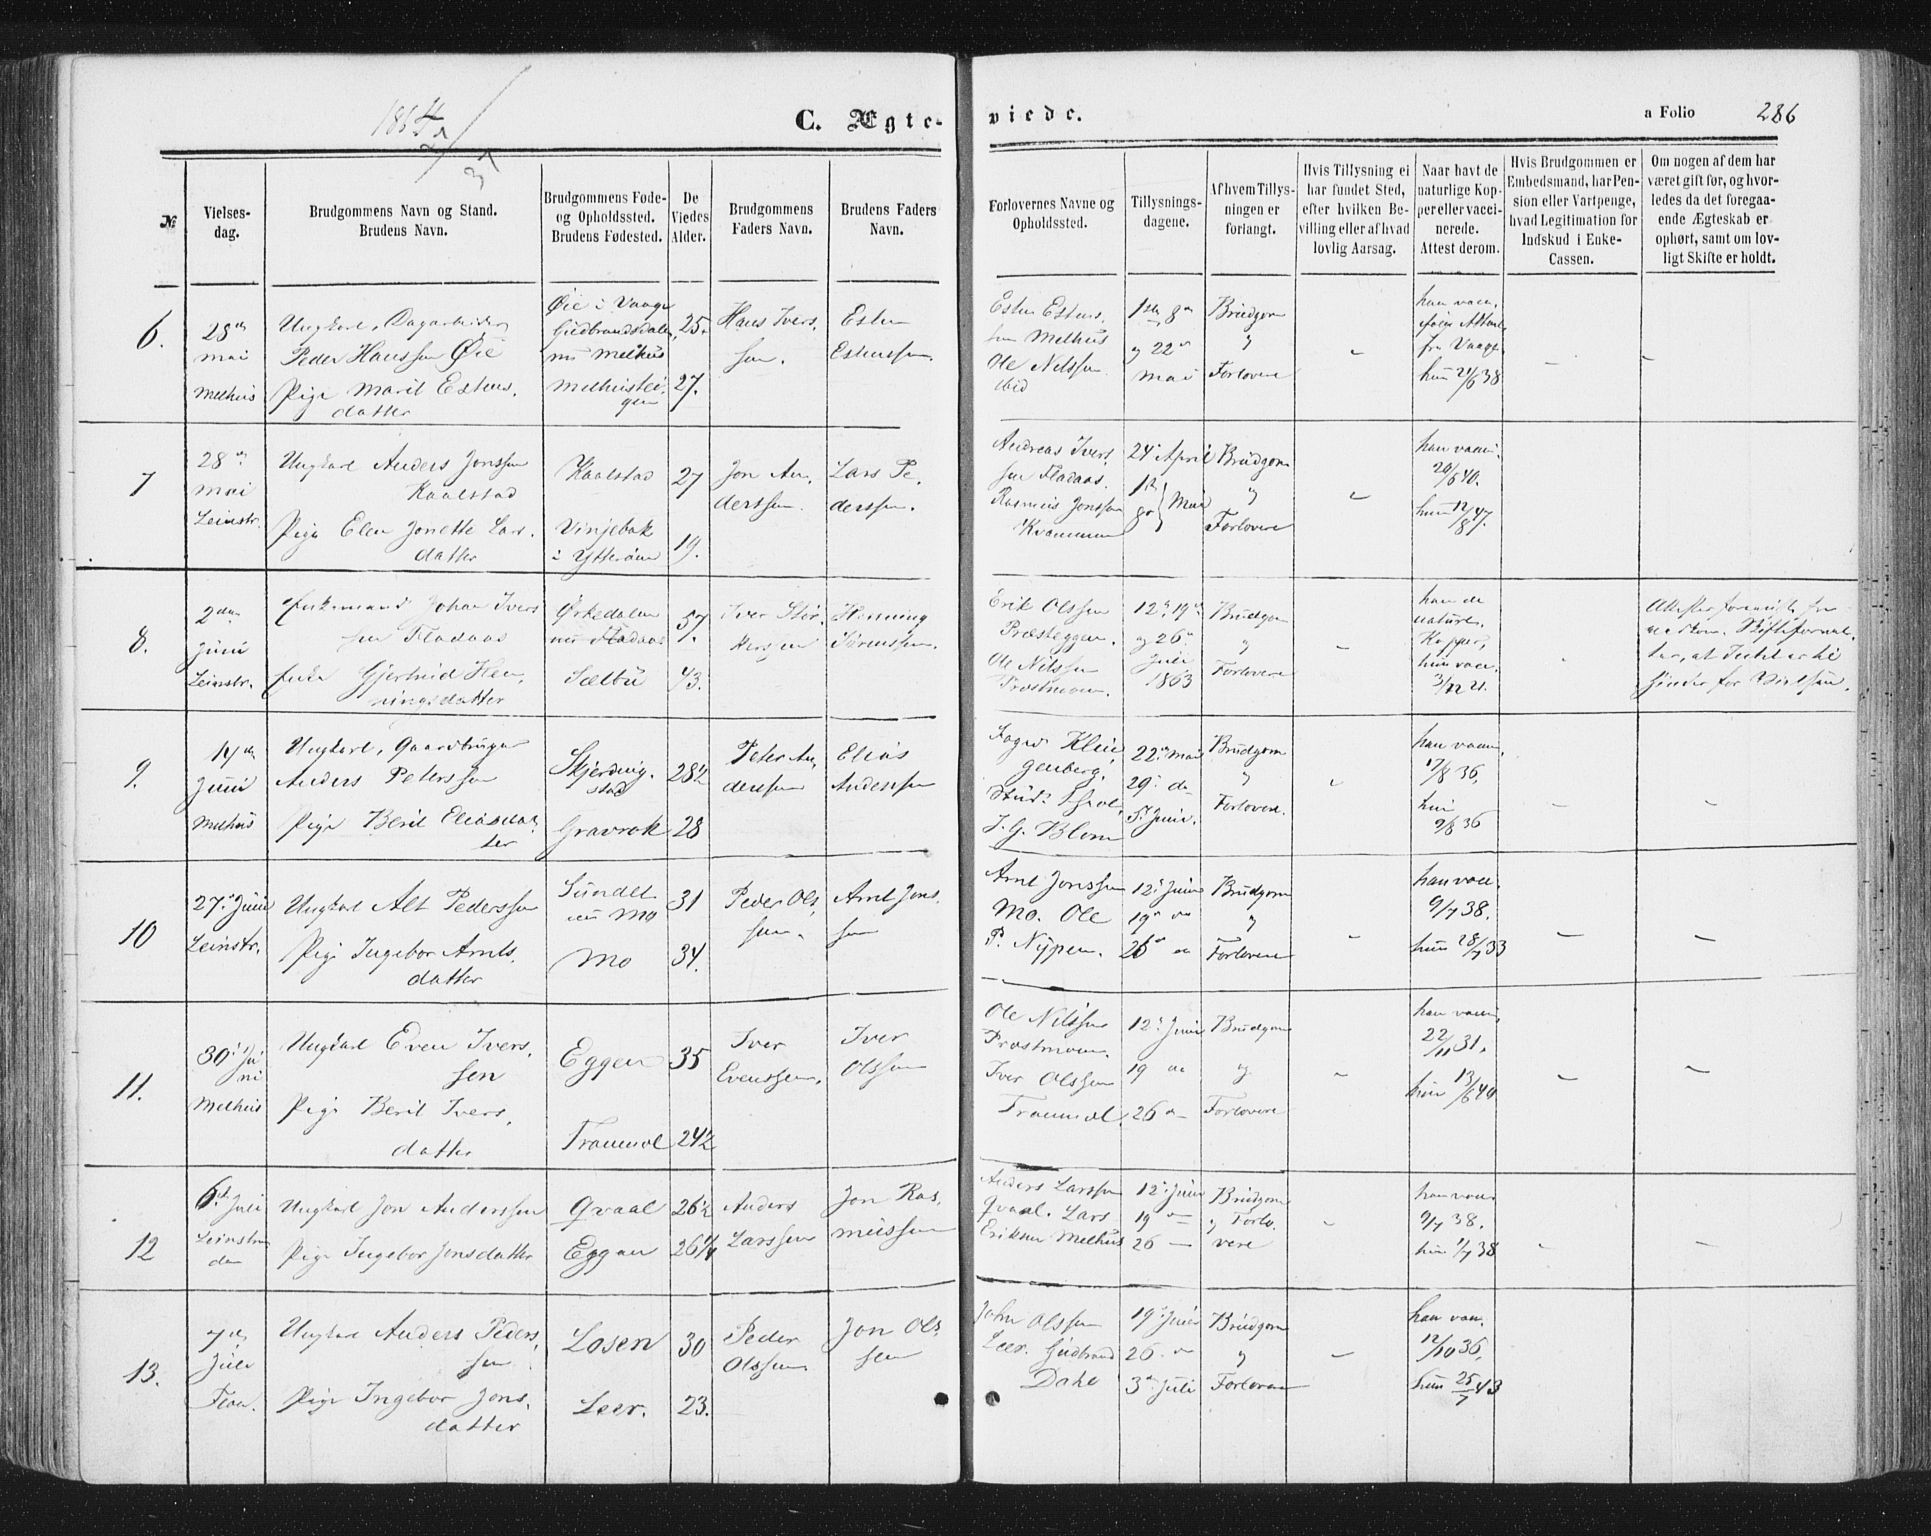 C. Ægteviede.
a Folio 286
№
Vielsesdag.
Brudgommens Navn og Stand.
Brudens Navn.
Brudgommens Føde-
og Opholdssted.
Brudens Fødested.
De
Viedes
Alder.
Brudgommens
Faders Navn.
Brudens Faders
Navn.
Forlovernes Navne og
Opholdssted.
Tillysnings-
dagene.
Af hvem Tillys-
ningen er
forlangt.
Hvis Tillysning ei
har fundet Sted,
efter hvilken Be-
villing eller af hvad
lovlig Aarsag.
Naar havt de
naturlige Kop-
per eller vacci-
nerede.
Attest derom.
Hvis Brudgommen er
Embedsmand, har Pen-
sion eller Vartpenge,
hvad Legitimation for
Indskud i Enke-
Cassen.
Om nogen af dem har
været gift før, og hvor-
ledes da det foregaa-
ende Ægteskab er
ophørt, samt om lov-
ligt Skifte er holdt.
6.
28de
mai
Melhus
Ungkarl, Dagarbeider
Peder Hanssen Øie
Pige Marit Estens.
datter
Øie i Vaage
Gudbrandsdalen
nu Melhus
25
27.
Hans Ivers.
sen.
Esten
Estensen.
Esten Estens.
sen Melhus
Ole Nilssen
ibid
1ste 8de
og 22de
Mai
Brudgom
og
Forlovere
han vacc.
fra Vaage
hun 21/6 38
7
28de
mai
Leinstr.
Ungkarl Anders Jonssen
Kaalstad
Pige Elen Jonette Lars.
datter
Kaalstad
27
19.
Jon An.
derssen.
Lars Pe.
derssen.
Andreas Ivers.
sen Fladaas.
Rasmus Jonssen
Kvammen
24de April
Mai
Brudgom
og
Forlovere
han vacc.
20/6 40.
hun 12/8 47.
8.
2den
Juni
Leinstr.
Enkemand Johan Ivers
sen Fladaas
Enke Gjertrud Hen.
ningsdatter
Ørkedalen
nu Fladaas
Sælbu
57.
43.
Iver
Henning
Sørenssen.
Erik Olssen
Præsteggen.
Ole Nilssen
Prøstmoen.
12te 19de
og 26de
Juli
1863
Brudgom
og
Forlovere
han de
naturl.
Kopper,
hun vacc.
9.
14de
Juni
Melhus
Ungkarl, Gaardbruger
Anders Peterssen
Pige Berit Eliasdat
ter
Skjerding.
stad
Gravrok
28½
28
Peter An.
derssen
Elias
Anderssen
Foged Klin
genberg,
J. G. Blom
22de Mai
29de do
5te Juni.
Brudgom
og
Forlovere.
han vacc.
17/8 36,
hun
9/8 36
10
27de Juni
Leinstr.
Ungkarl Alt Pederssen
Pige Ingebor Arnts.
datter
nu Mo
Mo
31
34.
Peder Ols.
sen.
Arnt Jons.
sen
Arnt Jonssen
Mo. Ole
P. Nypen.
12te Juni
19de do
26de do
Brudgom
og
Forlovere
han vacc.
9/7 38.
hun 28/7 33
11.
30te Ju
ni
Melhus
Ungkarl Even Ivers.
sen
Pige Berit Ivers.
datter
Eggen
35
24½
Iver
Evenssen.
Iver
Olssen
Ole Nilssen
Prøstmoen.
Iver Olssen
12te Juni
19 do
26 do
Brudgom
og
Forlovere
han vacc.
22/11 31.
hun
12
6te Juli
Leinstran
den
Ungkarl Jon Anderssen
Pige Ingebor Jonsdatter
Qvaal
Eggen
26½
26¼
Anders
Larssen
Jon Ras.
mussen
Anders Larssen
Qvaal. Lars
Eriksen Melhus
12te Juni
19 —
26 —
Brudgom
og Forlo.
vere
han vacc.
9/7 38.
13.
7de
Juli
Flaa.
Ungkarl Anders Peders.
sen.
Pige Ingebor Jons.
datter
Losen
Leer.
30
23.
Peder
Olssen
Jon Ols
sen
John Olssen
Leer. Gudbrand
Dahl
19de Juni
26 do
3de Juli
Brudgom
og
Forlovere
han vacc.
12/10 36,
hun 25/7 43